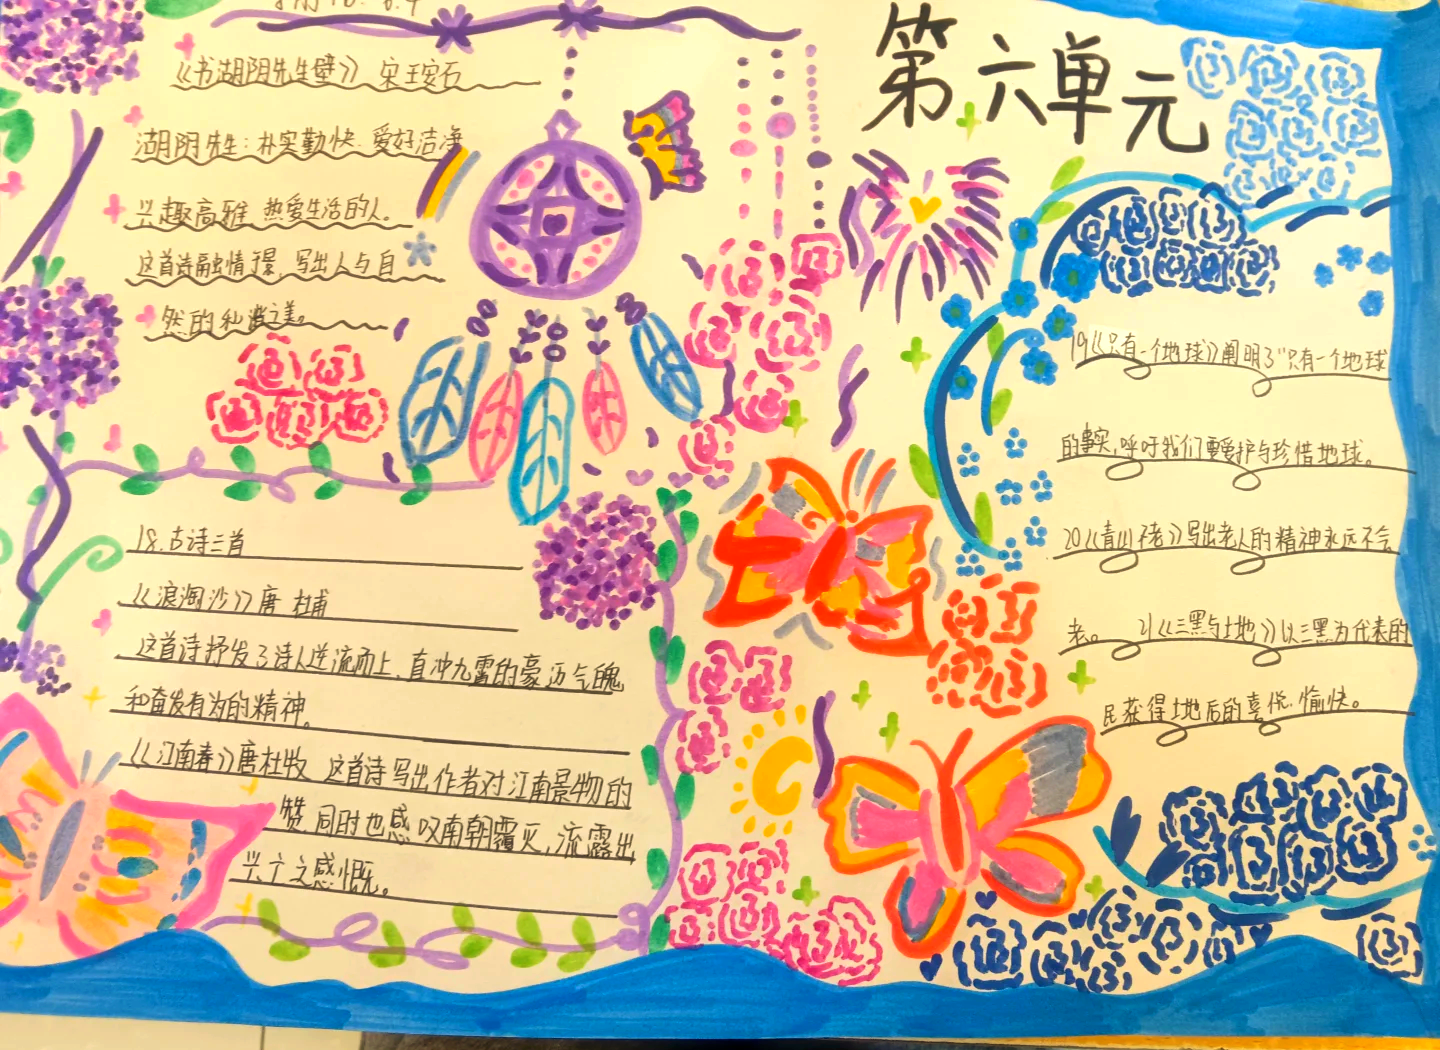 第六单元
《书湖阴先生壁》 宋王安石
湖阴先生:朴实勤快.爱好洁净
兴趣高雅 热爱生活的人.
这首诗融情于景,写出人与自
然的和谐之美。
18.古诗三首
《浪淘沙》唐
这首诗抒发了诗人逆流而上,直冲九霄的豪迈气魄
和奋发有为的精神。
《江南春》唐杜牧 这首诗写出作者对江南景物的
赞.同时也感叹南朝覆灭,流露出
兴亡之感慨。
19《只有一个地球》阐明了“只有一个地球
的事实,呼吁我们要爱护与珍惜地球。
20《青山不老》写出老人的精神永远不会
老。 21《三黑与土地》以三黑为代表的
民获得土地后的喜悦.愉快。